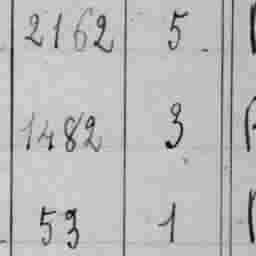 2162 5
1482 3
53 1